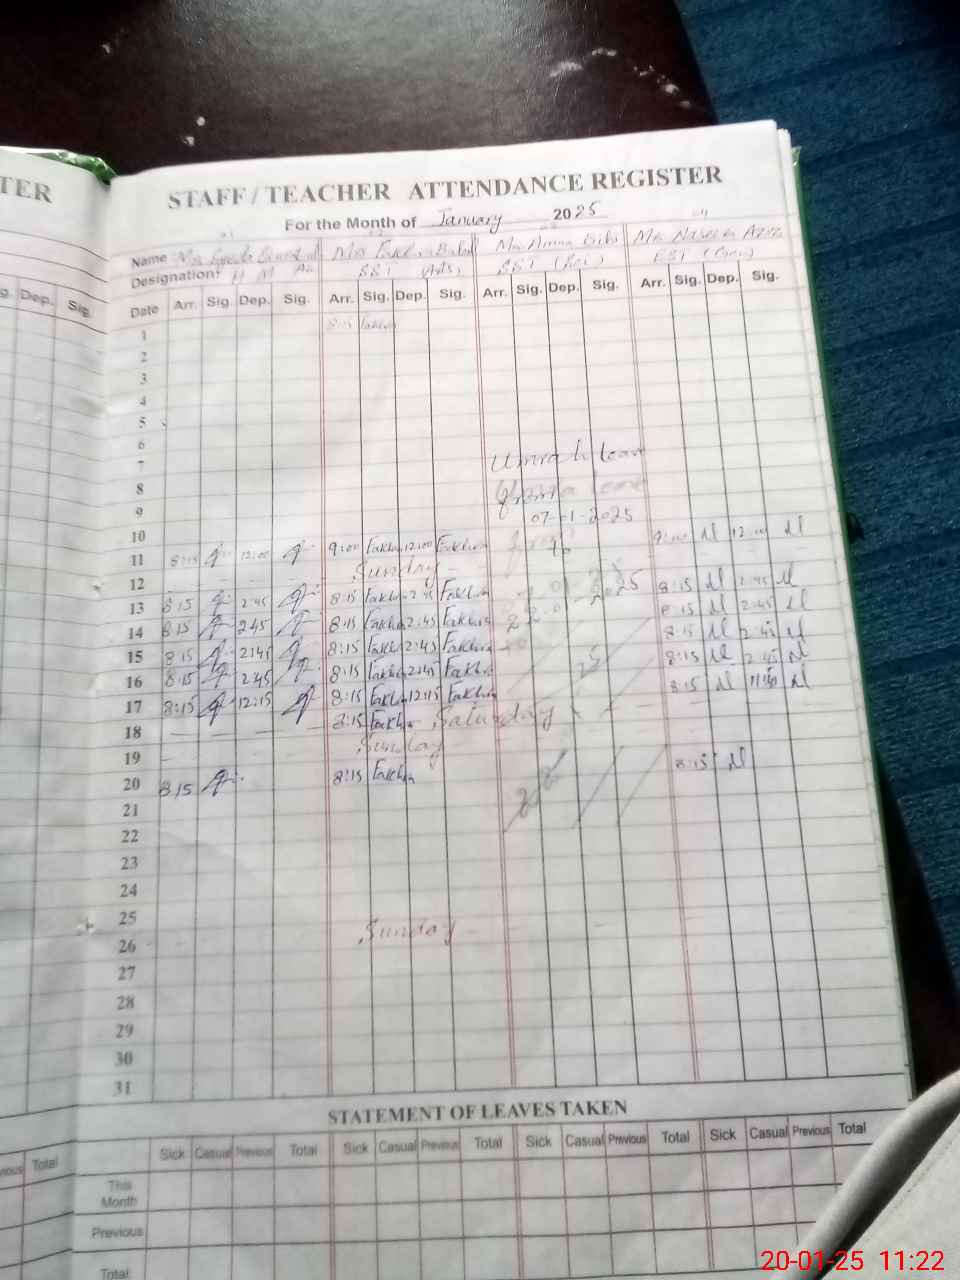 TER
STAFF / TEACHER ATTENDANCE REGISTER
For the Month of January 2025
Name Mrs Mrs Mrs Amna Bibi Mrs Naseem Aziz
Designation: H M SST (Arts) SST (Sci) EST (Gen)
g. Dep. Sig.
Date Arr. Sig. Dep. Sig. Arr. Sig. Dep. Sig. Arr. Sig. Dep. Sig. Arr. Sig. Dep. Sig.
1 8:15 Fakhra
2
3
4
5
6
7 Umrah leave
8 leave
9 07-01-2025
10
11 8:15 12:00 9:00 Fakhra 12:00 Fakhra 9:00 12:00
12 Sunday
13 8:15 2:45 8:15 Fakhra 2:45 Fakhra 8:15 2:45
14 8:15 2:45 8:15 Fakhra 2:45 Fakhra 8:15 2:45
15 8:15 2:45 8:15 Fakhra 2:45 Fakhra 8:15 2:45
16 8:15 2:45 8:15 Fakhra 2:45 Fakhra 8:15 2:45
17 8:15 12:15 8:15 Fakhra 12:15 Fakhra 8:15
18 8:15 Fakhra Saturday
19 Sunday
20 8:15 8:15 Fakhra 8:15
21
22
23
24
25
26 Sunday
27
28
29
30
31
STATEMENT OF LEAVES TAKEN
Sick Casual Previous Total Sick Casual Previous Total Sick Casual Previous Total Sick Casual Previous Total
Total
This Month
Previous
Total
20-01-25 11:22